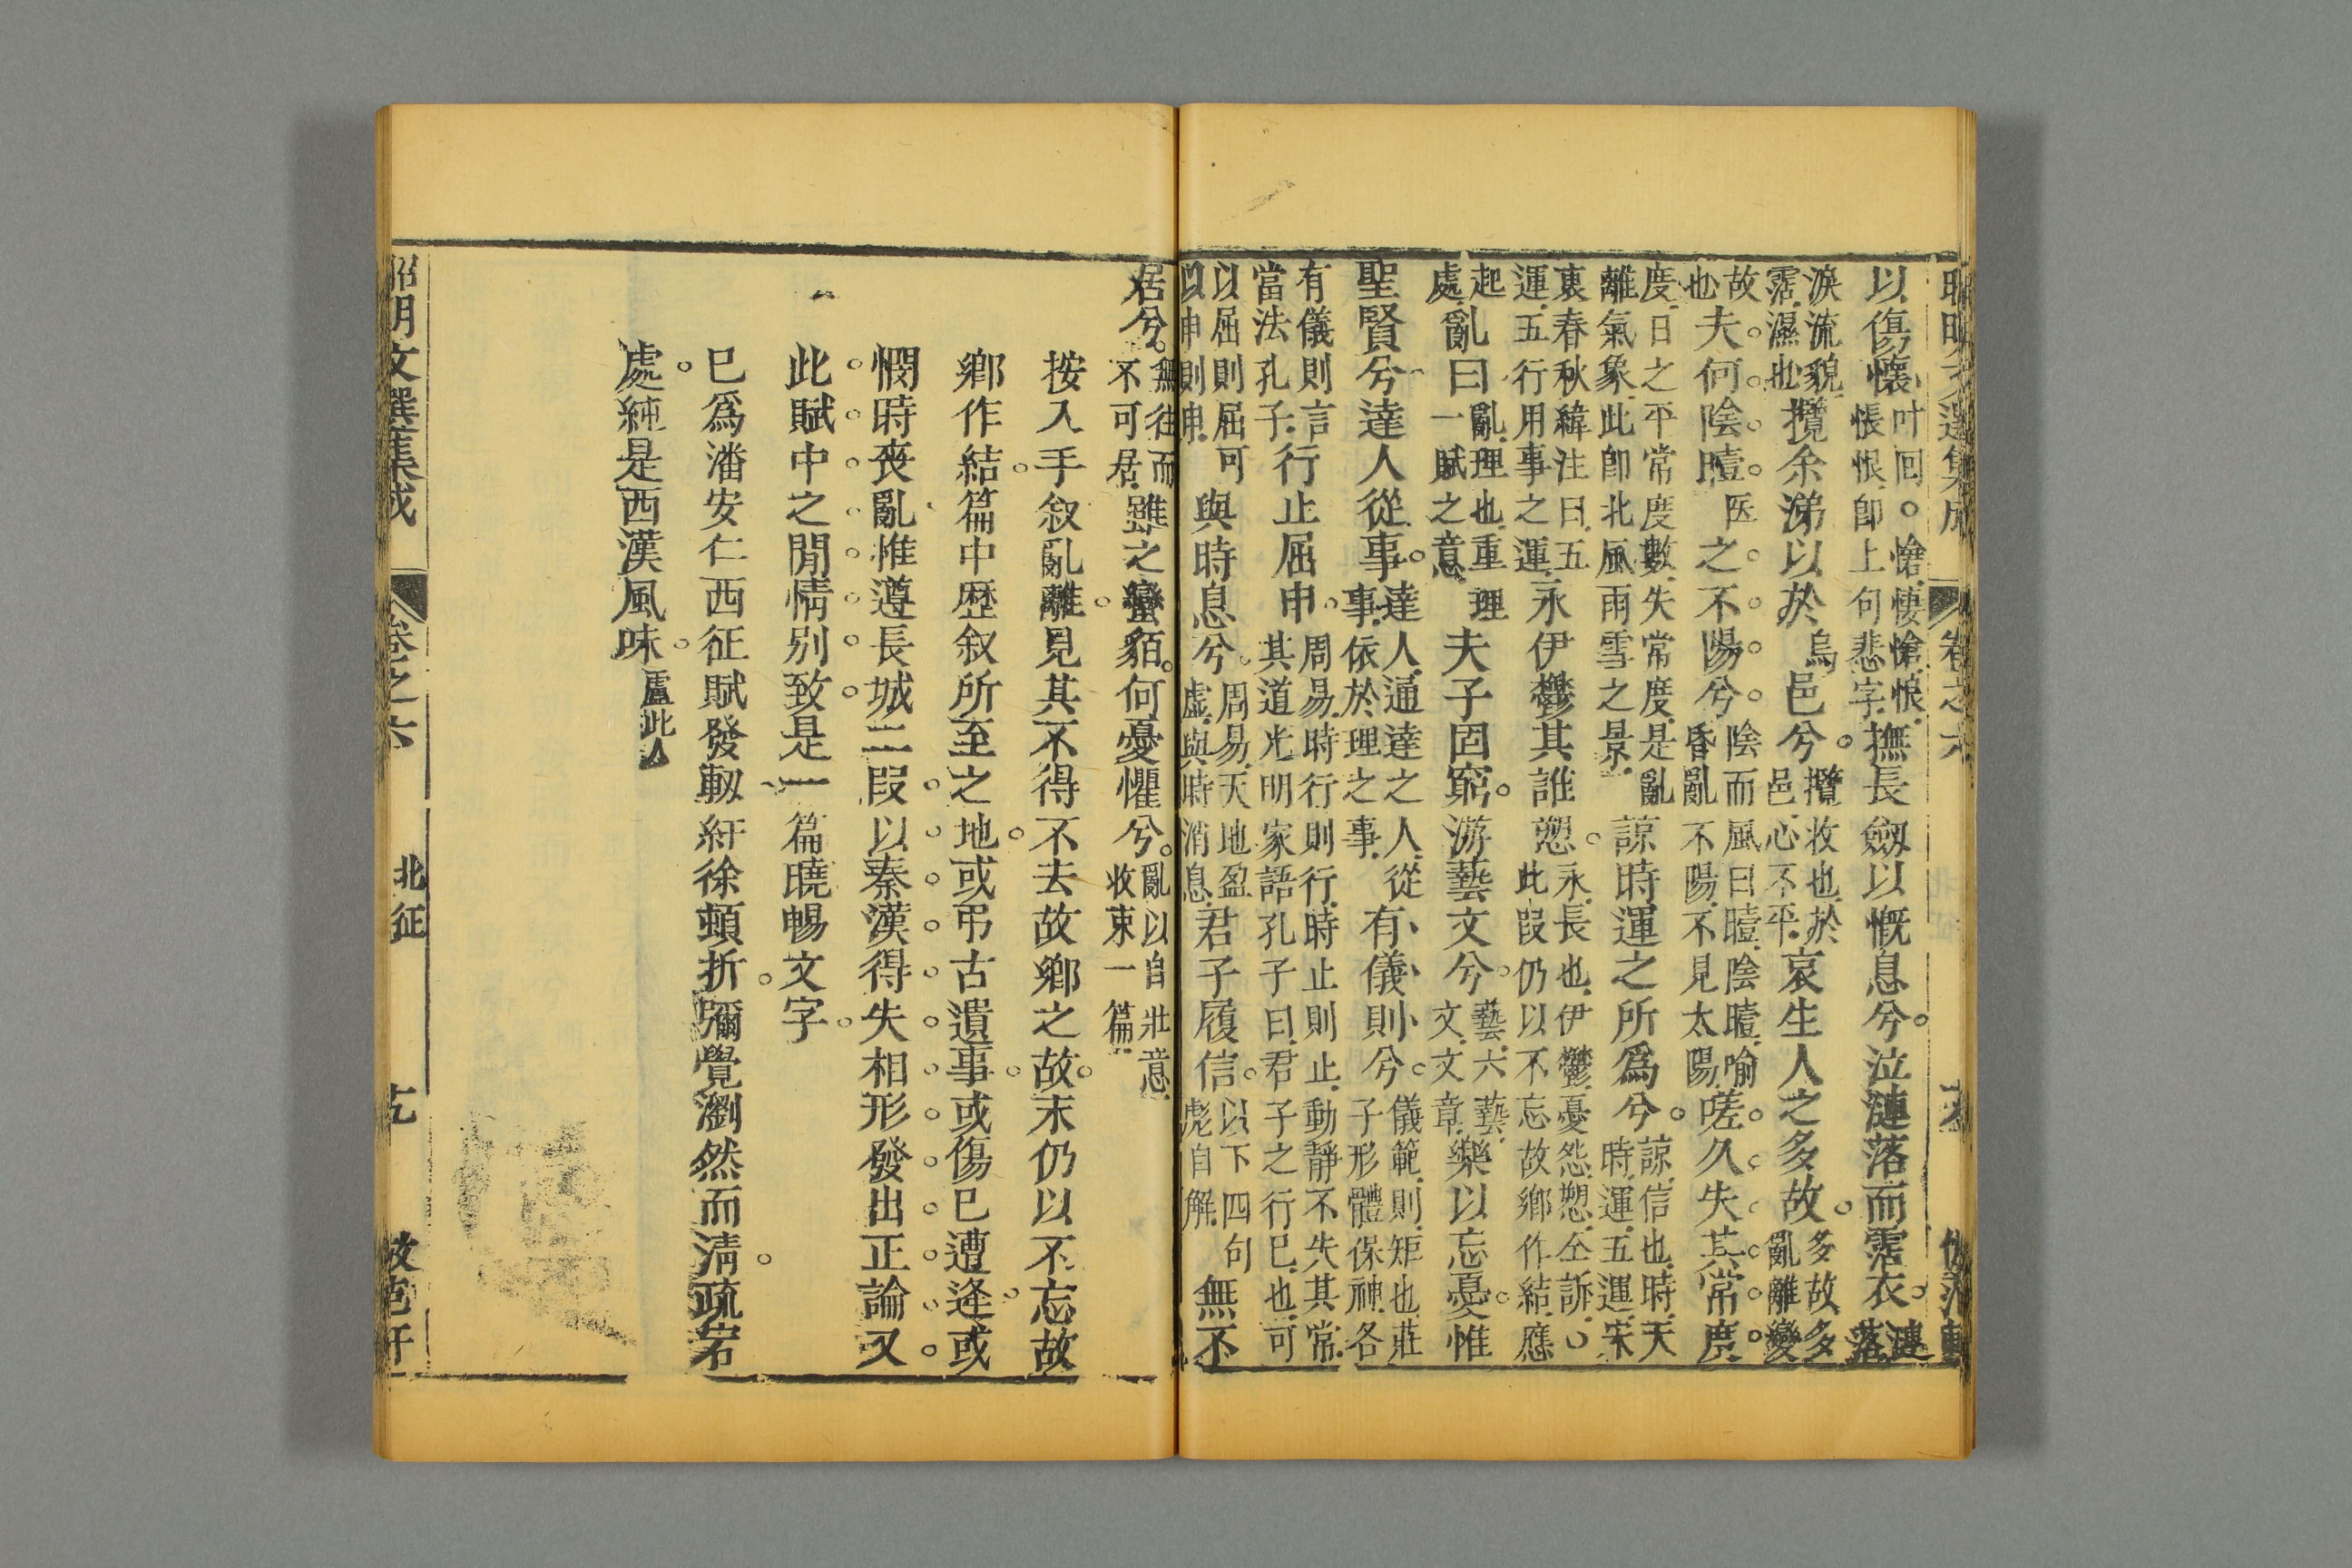 卷之六
以傷懷叶回。愴悽愴悢悵恨卽上句悲字撫長劔以慨息兮泣漣落而霑衣漣落
淚流貌霑濡也攬余涕以於烏邑兮攬收也於邑心不平哀生人之多故多故多亂離變
故也夫何陰曀医之不陽兮陰而風曰曀陰曀喻昏亂不陽不見太陽嗟久失其常度
度日之平常度數失常度是亂離氣象此卽北風雨雪之景諒時運之所爲兮諒信也時天時運五運宋
衷春秋緯注曰五運五行用事之運永伊鬱其誰愬永長也伊鬱憂怨愬仝訴此段仍以不忘故鄉作結應
起處亂曰亂理也重理一賦之意夫子固窮游藝文兮藝六藝文文章樂以忘憂惟
聖賢兮達人從事達人通達之人從事依於理之事有儀則兮儀範則矩也莊子形體保神各
有儀則言當法孔子行止屈申周易時行則行時止則止動靜不失其常其道光明家語孔子曰君子之行已也可
以屈則屈可以申則申與時息兮周易天地盈虛與時消息君子履信以下四句彪自解無不
居兮無往而不可居雖之蠻貊何憂懼兮亂以自壯意收束一篇
按入手叙亂離見其不得不去故鄉之故末仍以不忘故
鄉作結篇中歷叙所至之地或弔古遺事或傷已遭逢或
憫時喪亂惟遵長城二段以秦漢得失相形發出正論又
此賦中之閒情別致是一篇曉暢文字
已爲潘安仁西征賦發軔紆徐頓折彌覺瀏然而淸疏宕
處純是西漢風味
昭明文選集成
卷之六
北征